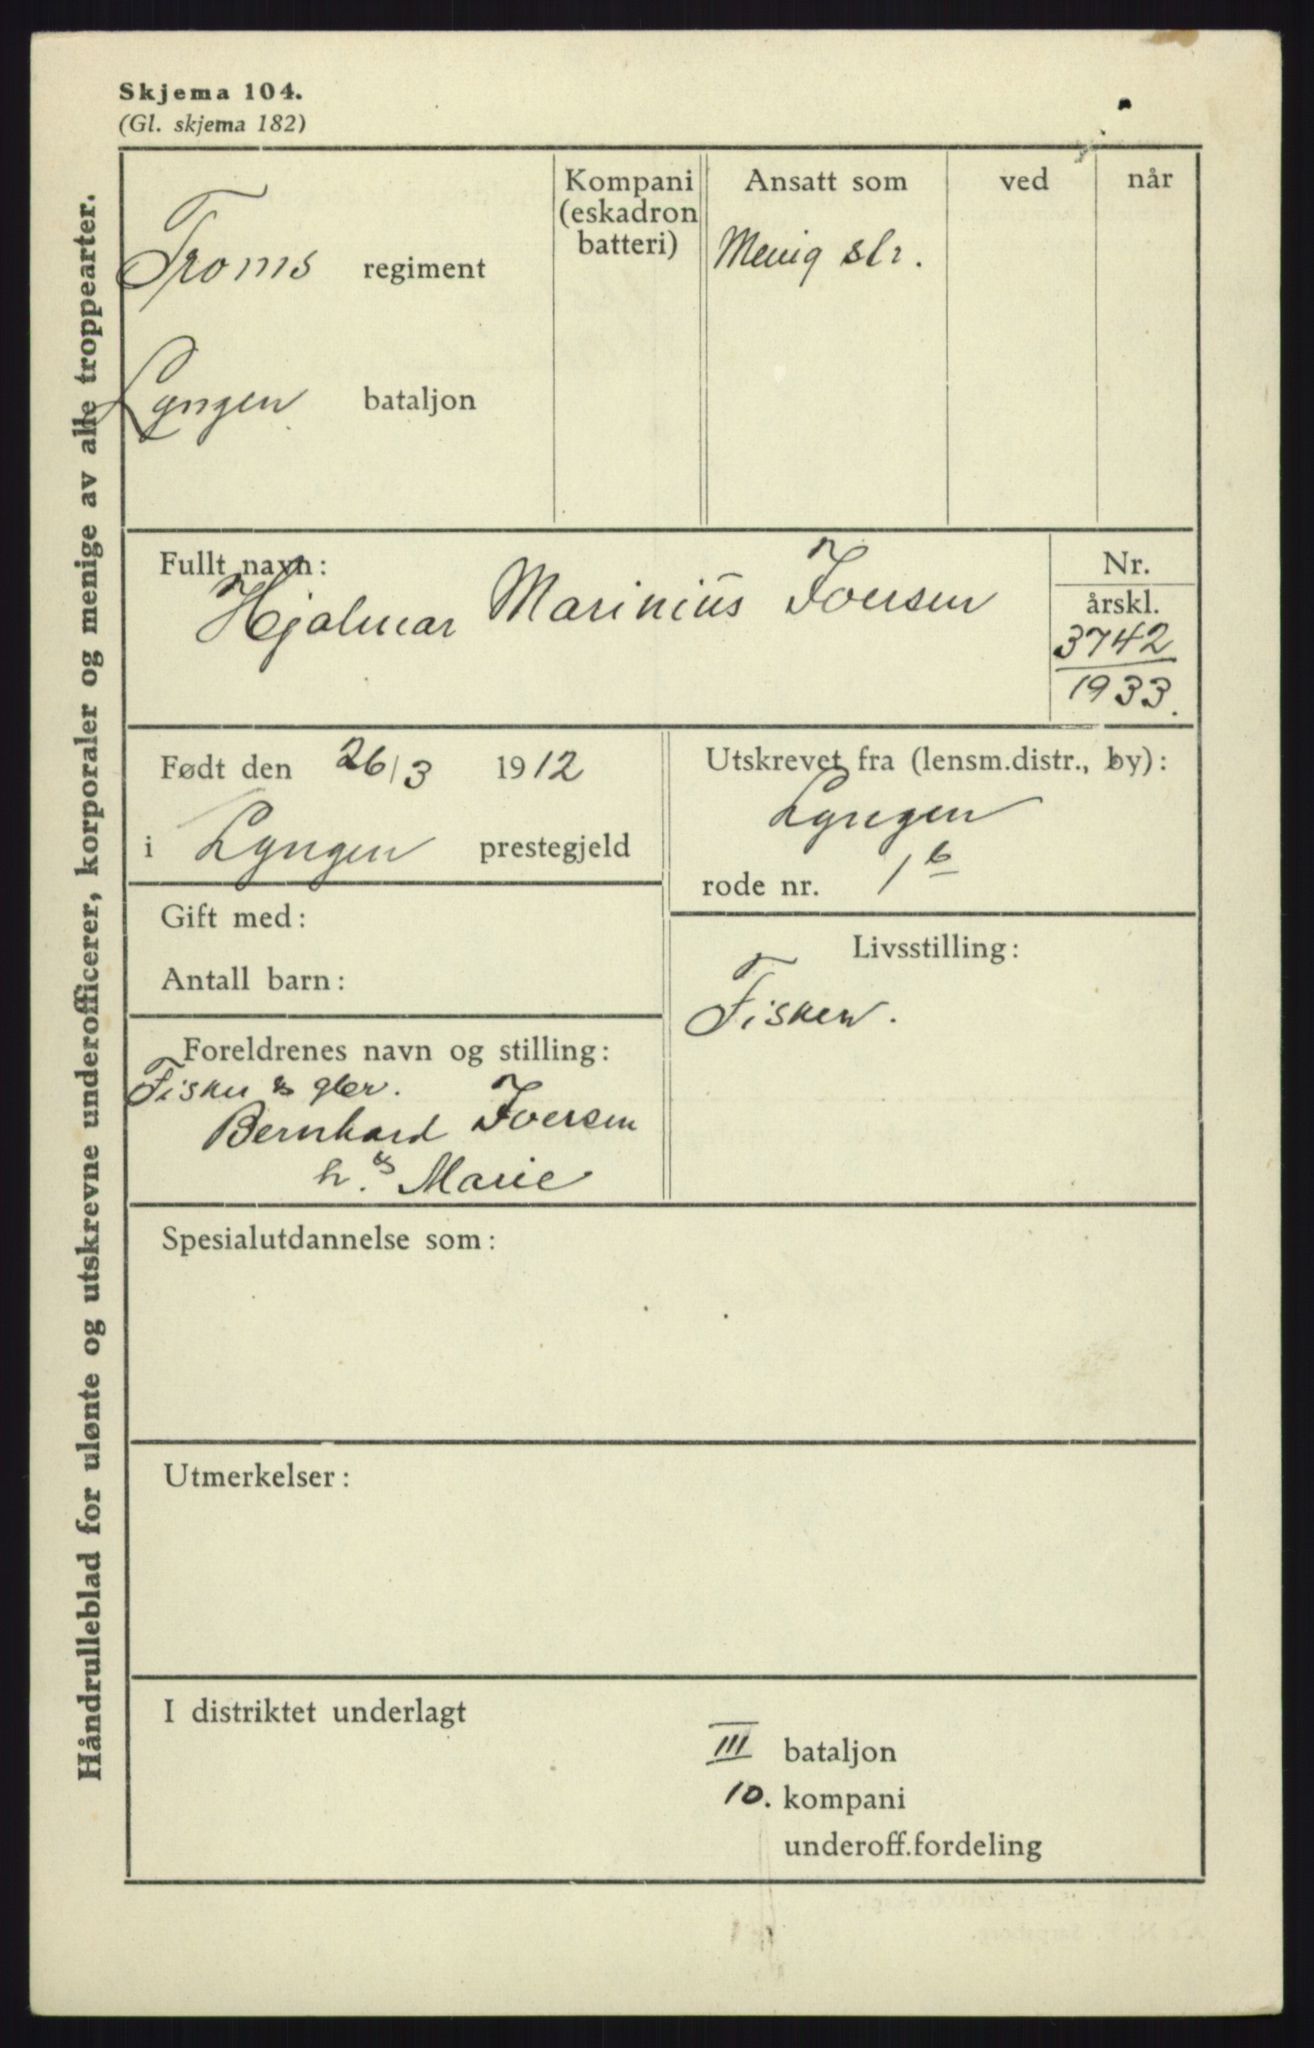 Skjema 104.
(Gl. skjema 182)
Håndrulleblad for ulønte og utskrevne underofficerer, korporaler og menige av alle troppearter.
Troms regiment
Lyngen bataljon
Kompani
(eskadron
batteri)
Ansatt som
Menig slr.
ved
når
Fullt navn:
Hjalmar Marinius Iversen
Nr.
årskl.
3742
1933.
Født den 26/3 1912
i Lyngen prestegjeld
Utskrevet fra (lensm.distr., by):
Lyngen
rode nr. 1b
Gift med:
Antall barn:
Livsstilling:
Fisker.
Foreldrenes navn og stilling:
Fisker & gbr.
Bernhard Iversen
h. & Marie
Spesialutdannelse som:
Utmerkelser:
I distriktet underlagt
III bataljon
10. kompani
underoff.fordeling